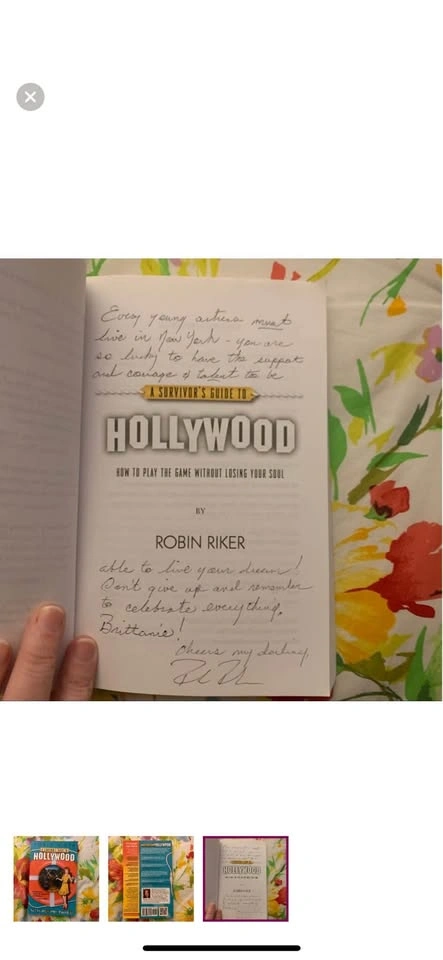 Every young actress must
live in New York - you are
so lucky to have the support
and courage & talent to be
A SURVIVOR'S GUIDE TO
HOLLYWOOD
HOW TO PLAY THE GAME WITHOUT LOSING YOUR SOUL
BY
ROBIN RIKER
able to live your dream!
Don't give up and remember
to celebrate everything,
Brittanie!
Cheers my darling,
HOLLYWOOD